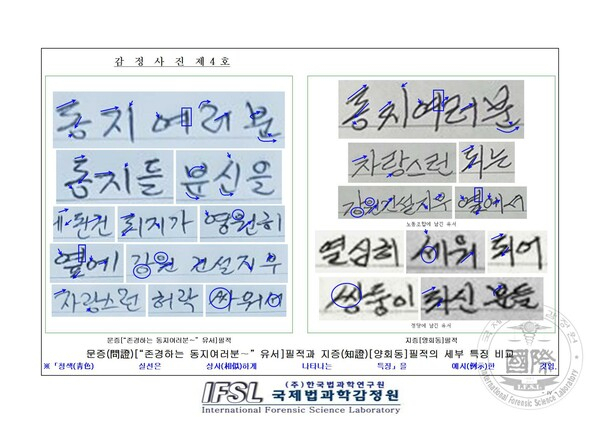 감 정 사 진 제 4 호
동지 여러분
동지들 분신을
된건 되지가 영원히
옆에 강원 건설지부
자랑스런 허락 싸워서
문증["존경하는 동지여러분~" 유서]필적
동지여러분
자랑스런 되는
강원건설지부 옆에서
노동조합에 남긴 유서
열심히 세워 되어
쌍둥이 하신 분들
정당에 남긴 유서
지증[양회동]필적
문증(問證)["존경하는 동지여러분~" 유서]필적과 지증(知證)[양회동]필적의 세부 특징 비교
※「청색(青色) 실선은 상사(相似)하게 나타나는 특징」을 예시(例示)한 것임.
IFSL (주)한국법과학연구원
국제법과학감정원
International Forensic Science Laboratory
國際
International Forensic Science Laboratory